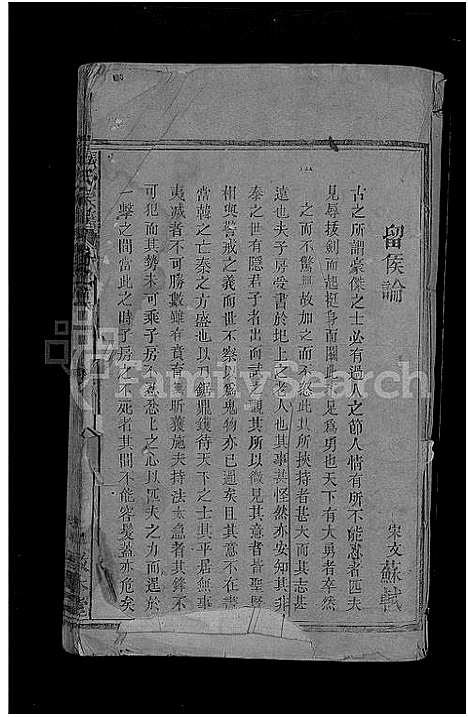 留侯論
宋文 蘇軾
古之所謂豪傑之士必有過人之節人情有所不能忍者匹夫
見辱拔劍而起挺身而鬬此不足爲勇也天下有大勇者卒然
之而不驚無故加之而不怒此其所挾持者甚大而其志甚
遠也夫子房受書於圯上之老人也其事甚怪然亦安知其非
秦之世有隱君子者出而試之觀其所以微見其意者皆聖賢
相與警戒之義而世不察以爲鬼物亦已過矣且其意不在書
當韓之亡秦之方盛也以刀鋸鼎鑊待天下之士其平居無事
夷滅者不可勝數雖有賁育無所獲施夫持法太急者其鋒不
可犯而其勢未可乘子房不忍忿忿之心以匹夫之力而逞於
一擊之間當此之時子房之不死者其間不能容髮蓋亦危矣
FamilySearch